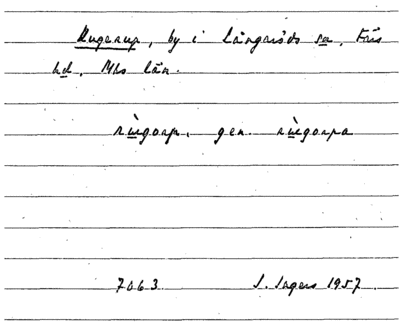 Rugerup, by i Långaröds sn, Färs
hd, Mhs län.
rùgorup, gen. rùgorpa
7063 S. Sagers 1957.